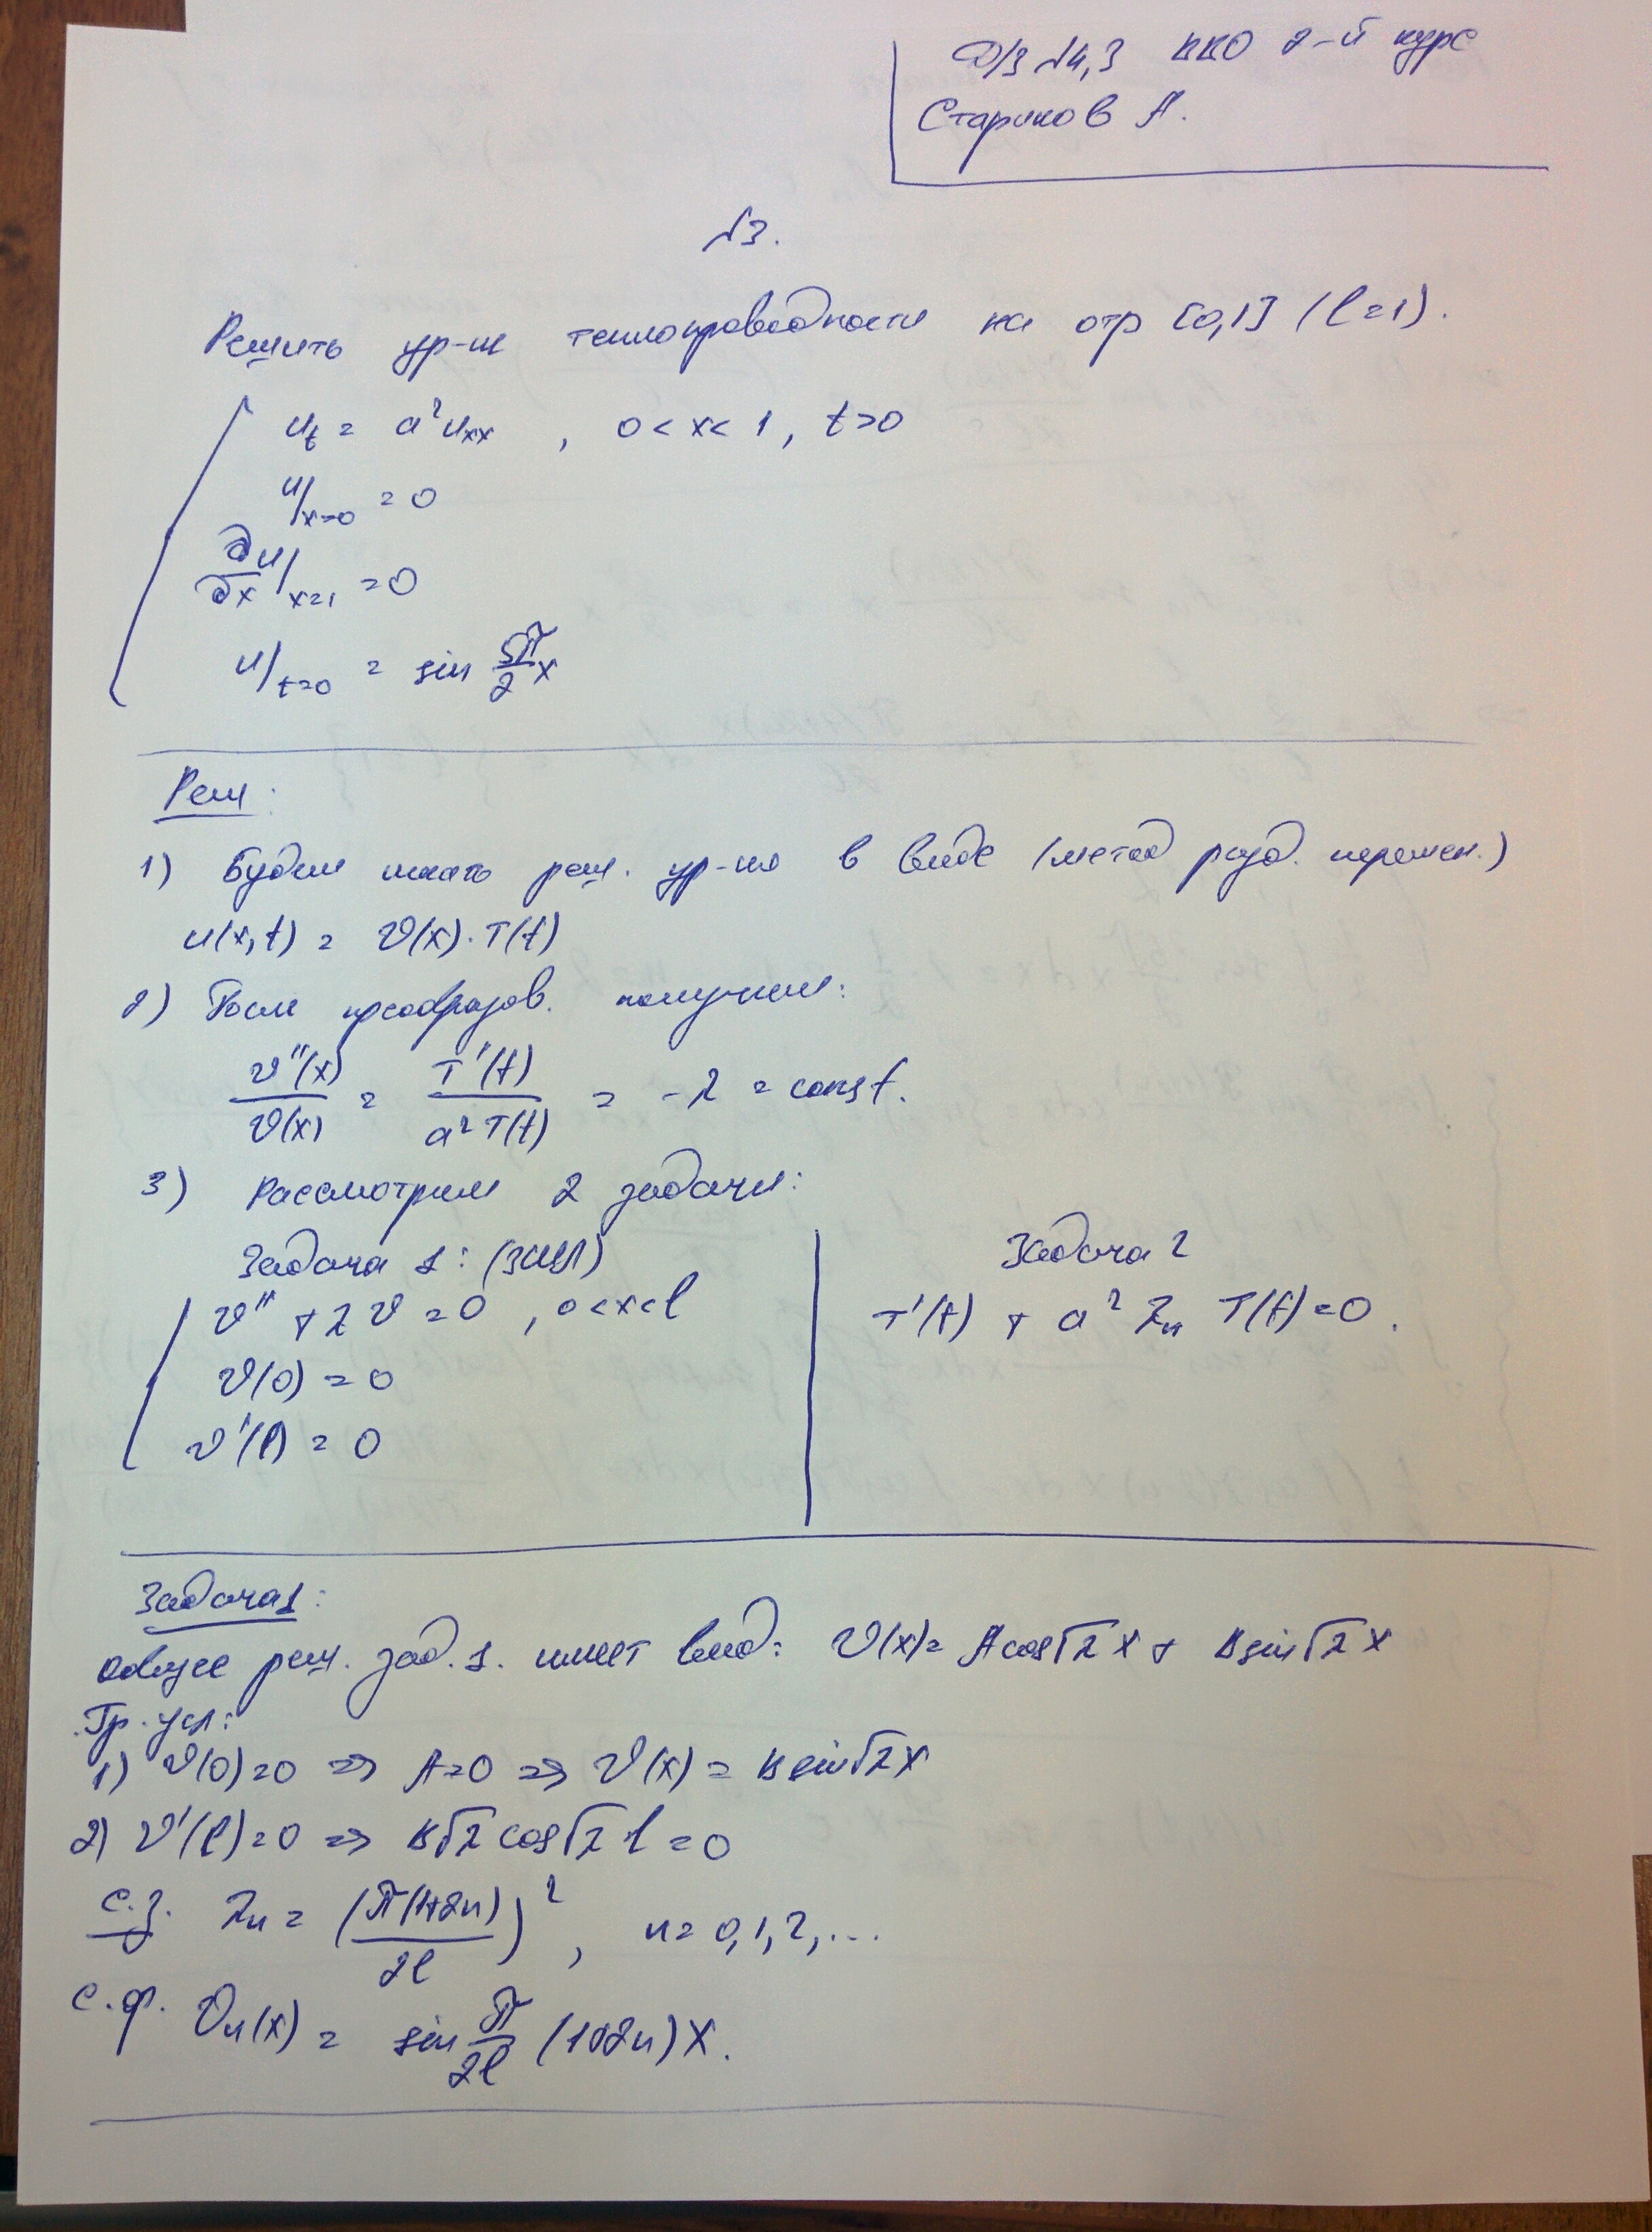 Д/з №4,3 ККО 2-й курс
Стариков А.
№3.
Решить ур-ие теплопроводности на отр [0,1] (l=1).
u_t = a²u_xx , 0 < x < 1, t>0
u|_x=0 = 0
∂u/∂x|_x=1 = 0
u|_t=0 = sin 5π/2 x
Реш:
1) Будем искать реш. ур-ия в виде (метод разд. перемен.)
u(x,t) = v(x)·T(t)
2) После преобразов. получим:
v''(x)/v(x) = T'(t)/a²T(t) = -λ = const.
3) Рассмотрим 2 задачи:
Задача 1: (ЗШЛ)
v'' + λv = 0 , 0<x<l
v(0) = 0
v'(l) = 0
Задача 2
T'(t) + a² λn T(t) = 0.
Задача 1:
общее реш. зад. 1. имеет вид: v(x)= A cos√λ x + B sin√λ x
Гр. усл:
1) v(0)=0 => A=0 => v(x) = B sin√λ x
2) v'(l)=0 => B√λ cos√λ l = 0
с.з. λn = (π(1+2n)/2l)² , n= 0,1,2,...
с.ф. vn(x) = sin π/2l (1+2n)x.